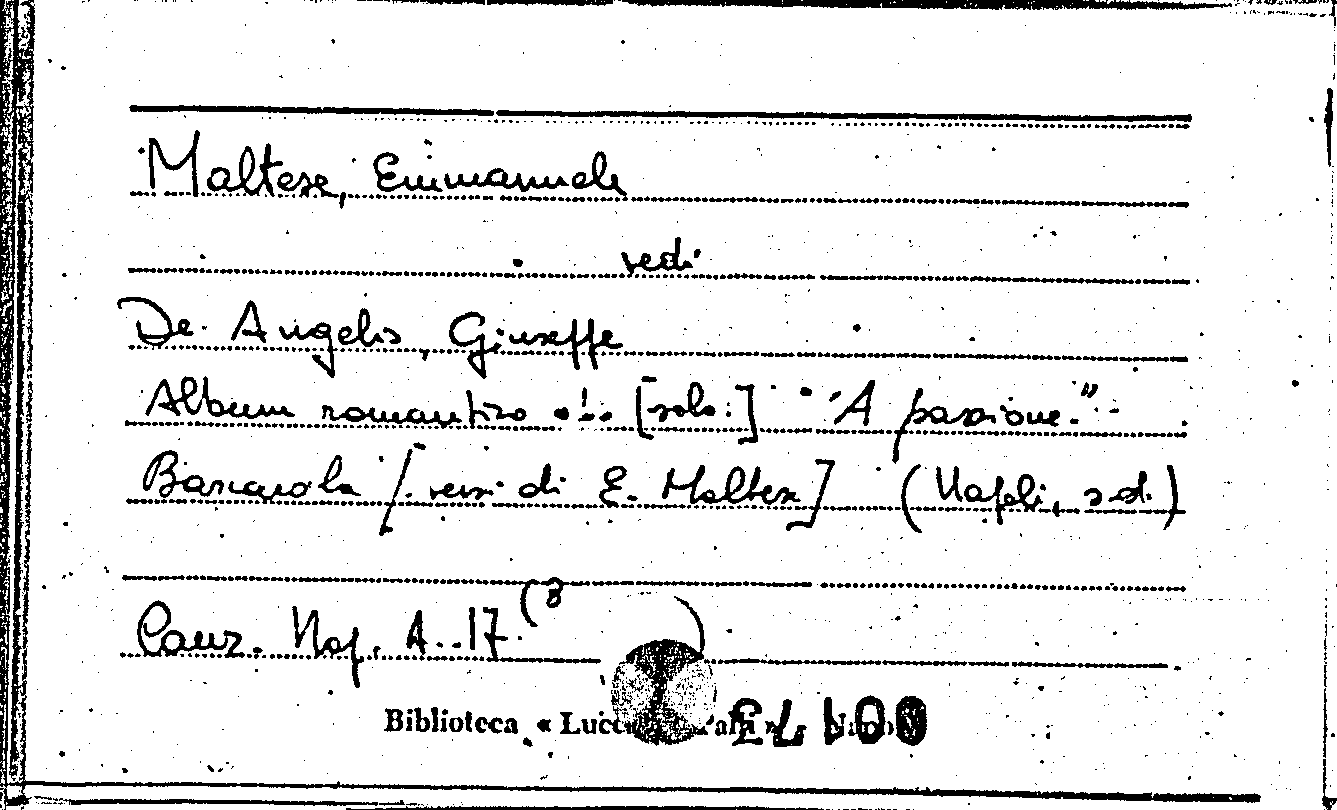 Maltese, Emmanuele
vedi
De Angelis, Giuseppe
Album romantico ... [solo:] "'A passione."
Barcarola [versi di E. Maltese] (Napoli, s.d.)
Canz. Nap. A. 17 (3 )
Biblioteca « Lucc